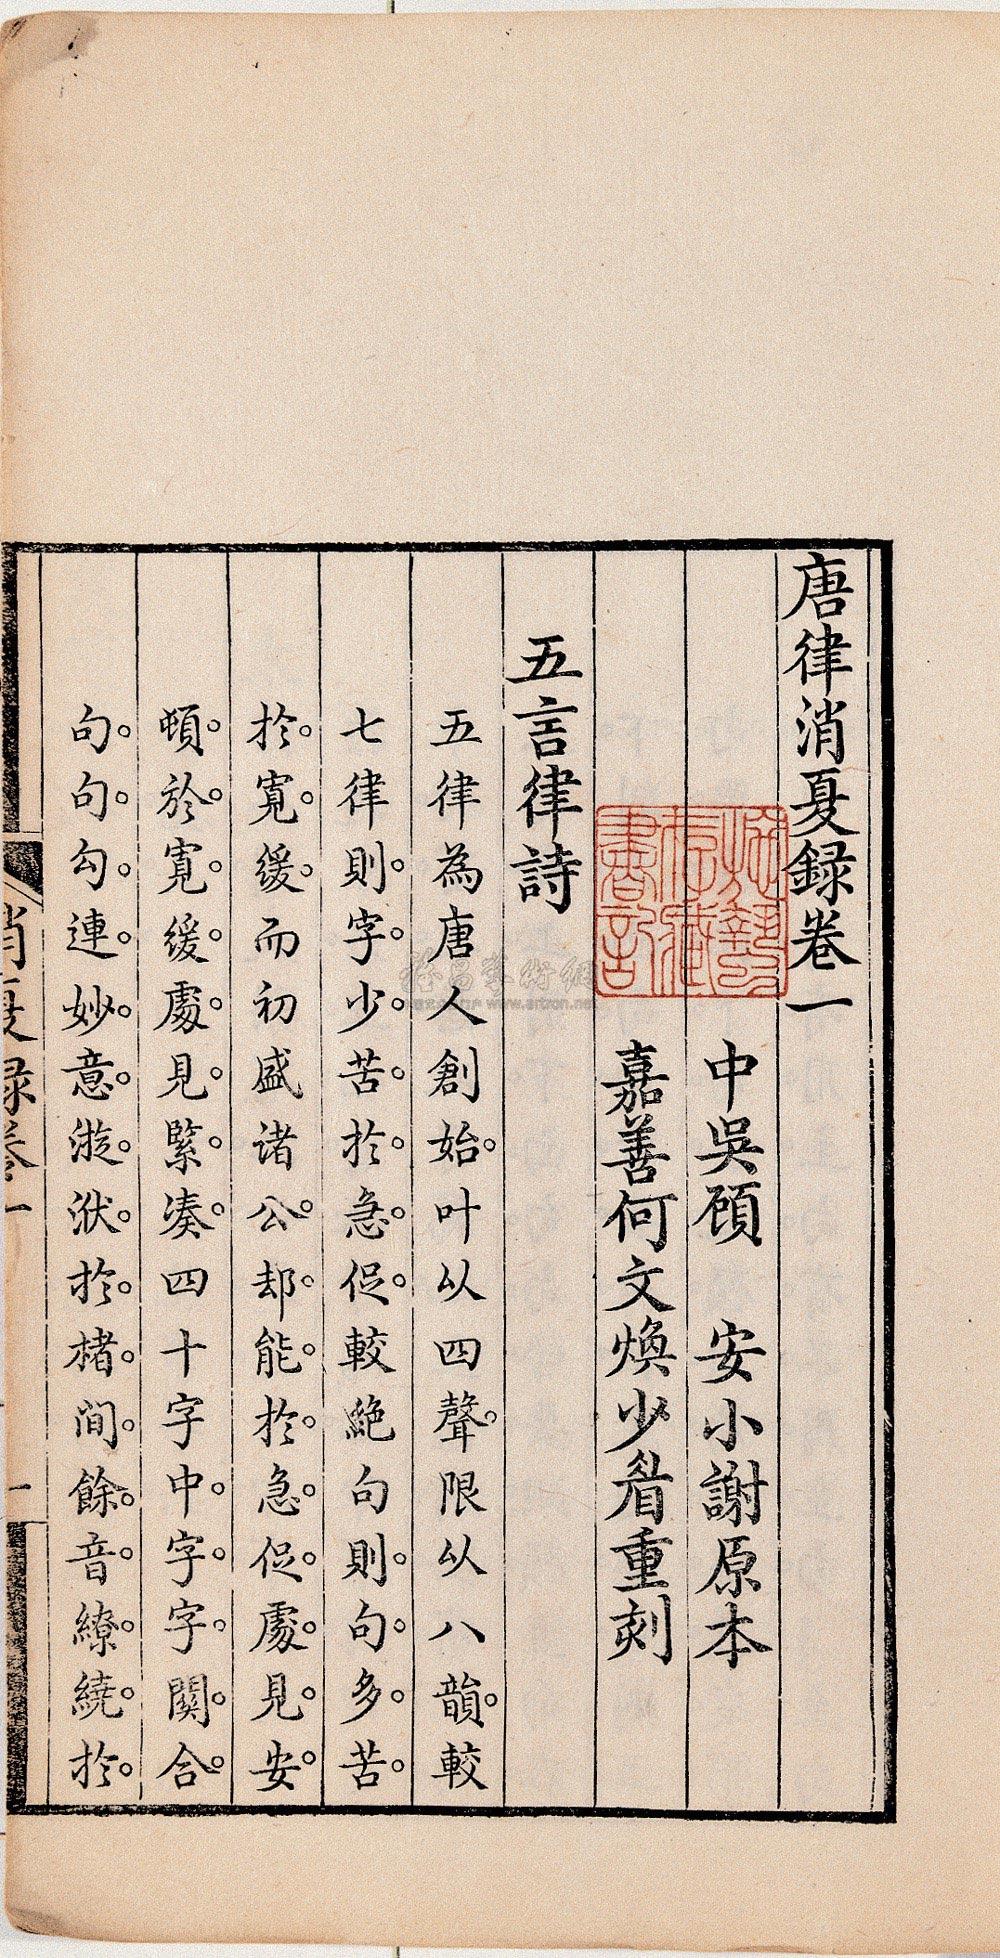 唐律消夏録卷一
中吳顧　安小謝原本
嘉善何文煥少眉重刻
五言律詩
五律為唐人創始叶以四聲限以八韻較
七律則字少苦扵急促較絶句則句多苦
扵寬緩而初盛诸公却能扵急促處見安
頓於寬緩處見緊凑四十字中字字関合
句句勾連妙意漩洑扵楮间餘音繚繞扵
消夏録卷一
一
www.artron.net